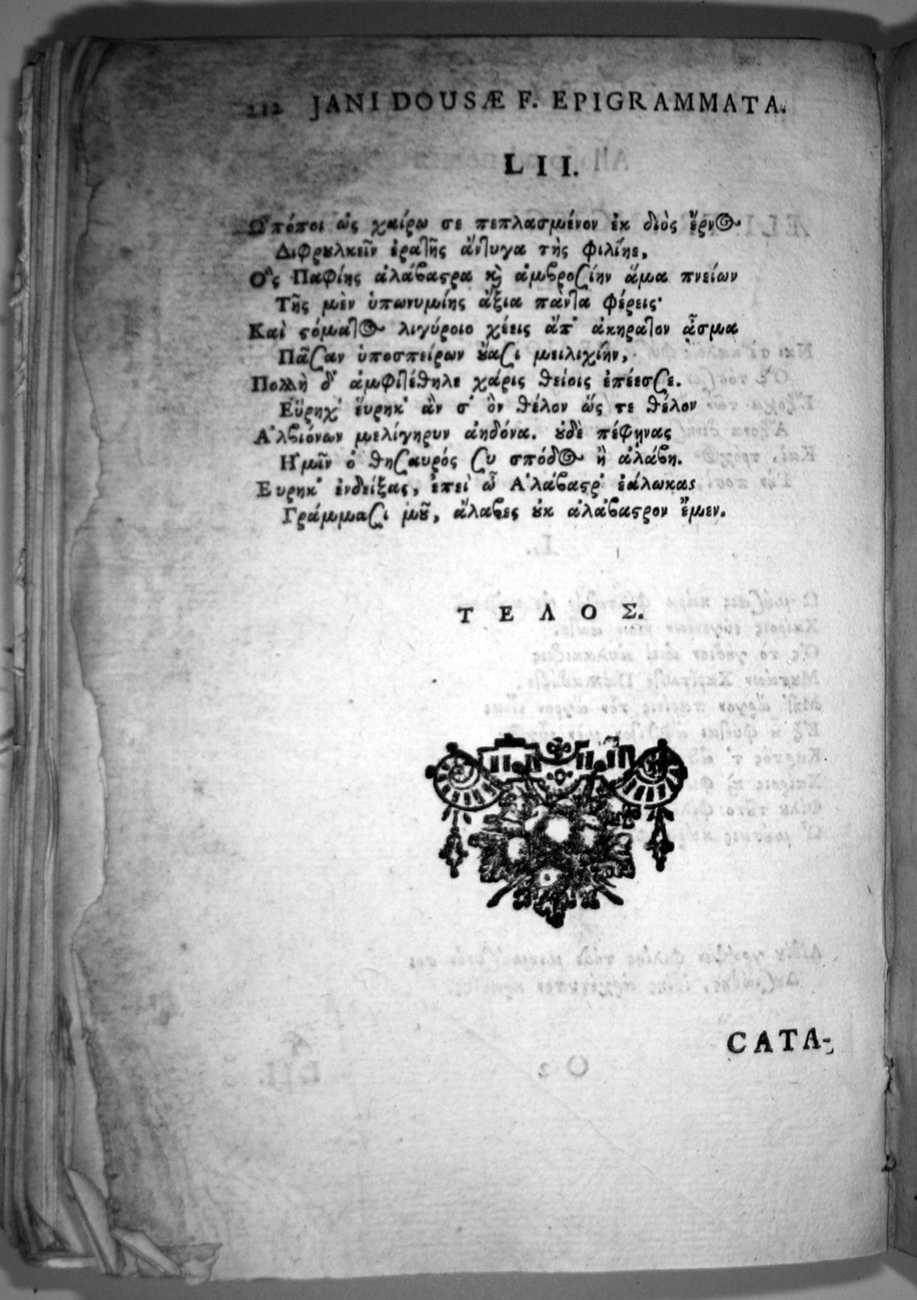 212 JANI DOUSÆ F. EPIGRAMMATA.
LII.
Ὢ πόποι ὡς χαίρω σε πεπλασμένον ἐκ διὸς ἔρνος
Διφρυλκεῖν ἐρατῆς ἄντυγα τῆς φιλίης,
Ὃς Παφίης ἀλάβαστρα καὶ ἀμβροσίην ἅμα πνείων
Τῆς μὲν ὑπωνυμίης ἄξια πάντα φέρεις·
Καὶ στόματος λιγύροιο χέεις ἄπ' ἀκήρατον ᾆσμα
Πᾶσαν ὑποσπείρων οὔασι μειλιχίην,
Πολλὴ δ' ἀμφιτέθηλε χάρις θείοις ἐπέεσσε.
Εὕρηχ' εὕρηκ' ἂν σ' ὃν θέλον ὥς τε θέλον
Ἀλβιόνων μελίγηρυν ἀηδόνα. οὐδε πέφηνας
Ἡμῖν ὁ θησαυρός συ σπόδος ἢ ἀλάβη.
Ευρηκ' ἐνδείξας, ἐπεὶ ὦ Ἀλάβαστρ ἑάλωκας
Γράμμασι μοῦ, ἄλαβες οὐκ ἀλάβαστρον ἔμεν.
ΤΕΛΟΣ.
CATA-